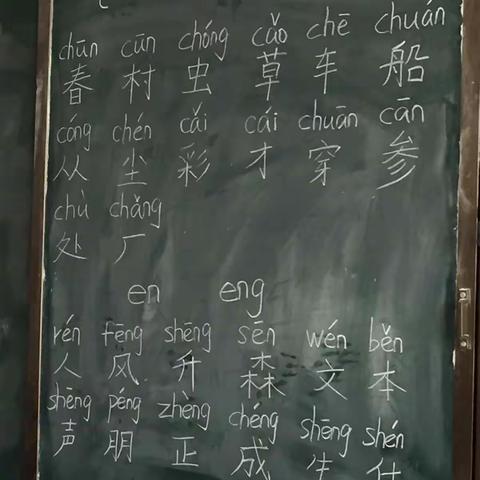 chūn cūn chóng cǎo chē chuán
春 村 虫 草 车 船
cóng chén cǎi cái chuān cān
从 尘 彩 才 穿 参
chù chǎng
处 厂
en eng
rén fēng shēng sēn wén běn
人 风 升 森 文 本
shēng péng zhèng chéng shēng shén
声 朋 正 成 生 什